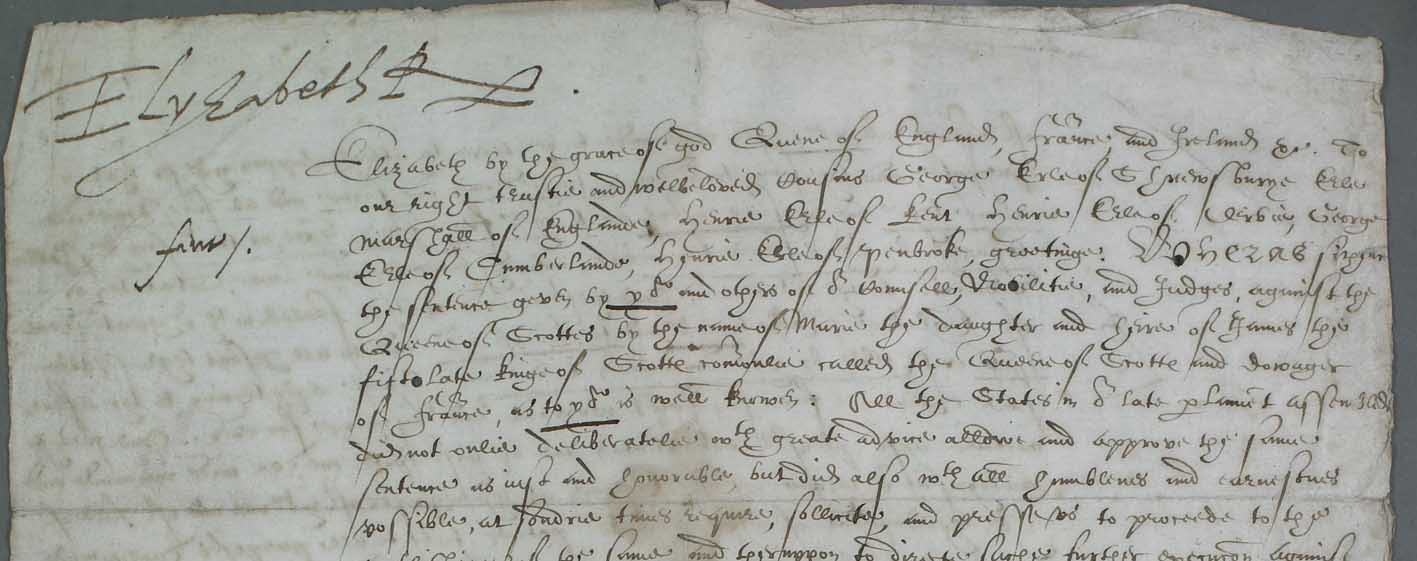 Elyzabeth R
Elizabeth by the grace of god Quene of England, france, and Ireland &c. To
our right trustie and welbeloved Cousins George Erle of Shrewsburye Erle
marshall of Englande, Henrie Erle of kent Henrie Erle of Derbie, George
Erle of Cumberlande, Henrie Erle of penbroke, greetinge. Wheras sithence
the sentence geven by yow and others of or Counsell, Nobilitie, and Judges, against the
Queene of Scottes by the name of Marie the daughter and heire of James the
fift late kinge of Scottes comonlie called the Queene of Scottes and dowager
of france, as to yow is well knowen: All the States in or late parliament assembled
did not onlie deliberatelie wth greate advice allowe and approve the same
sentence as iust and honorable, but did also wth all humblenes and earnestnes
possible, at sondrie times require, sollicite, and presse vs to proceede to the
of the same and theruppon to direct suche further execucon against